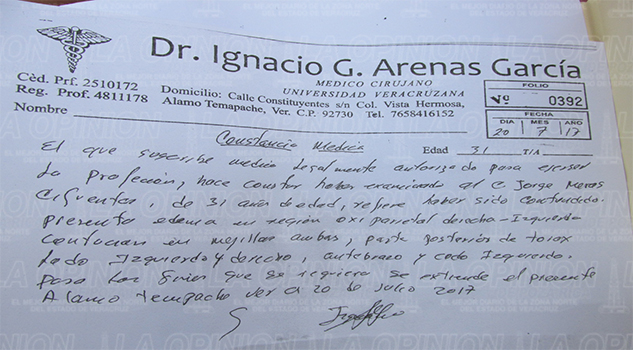 Dr. Ignacio G. Arenas García
MEDICO CIRUJANO
UNIVERSIDAD VERACRUZANA
Cèd. Prf. 2510172
Reg. Prof. 4811178
Domicilio: Calle Constituyentes s/n Col. Vista Hermosa,
Alamo Temapache, Ver. C.P. 92730 Tel. 7658416152
FOLIO
Nº 0392
FECHA
DIA MES AÑO
20 7 17
Nombre
Edad 31 T/A
Constancia Medica
El que suscribe medico legalmente autorizado para ejercer
la Profecion, hace constar haber examinado al C. Jorge
Cifuentes, de 31 años de edad, refiere haber sido
presenta edema en región derecho-Izquierdo
en mejillas ambas, parte posterior de torax
lado Izquierdo y derecho, antebrazo y codo Izquierdo.
para los fines que se requiera se extiende el presente
Alamo Temapache ver a 20 de Julio 2017
LA OPINION